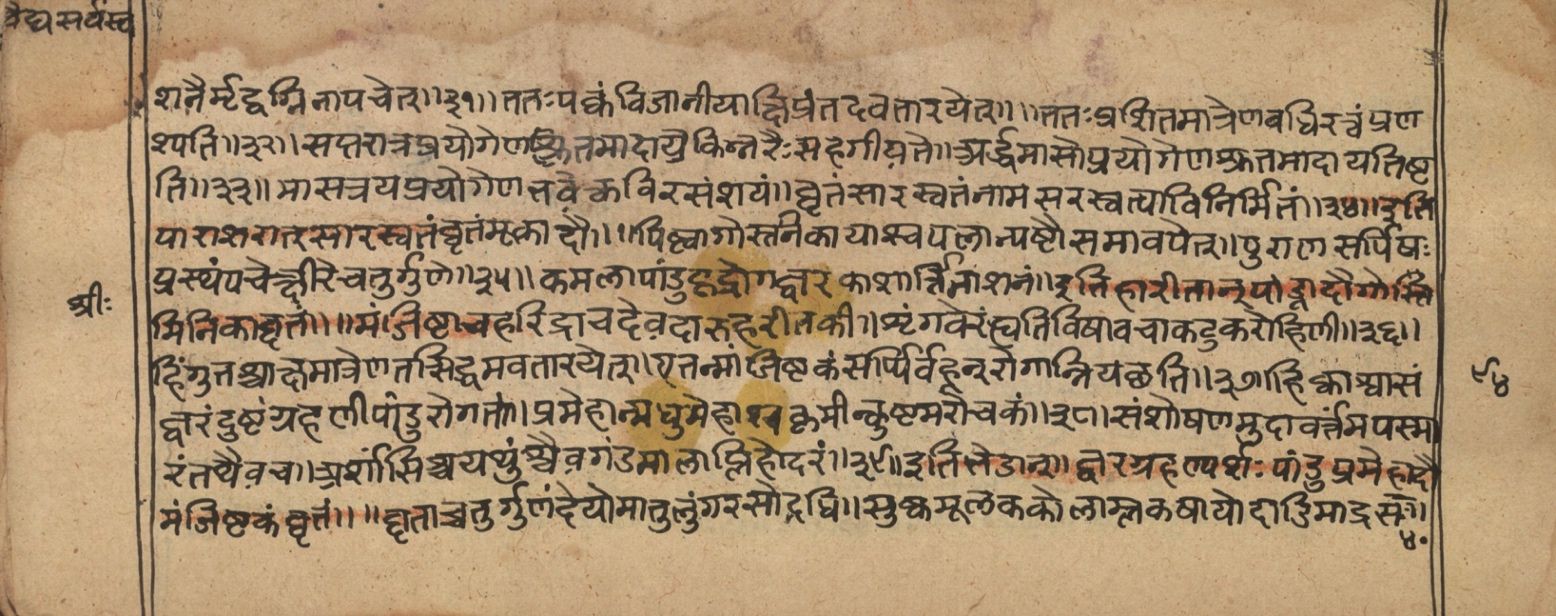 वैद्यसर्वस्व
शनैर्मृद्वग्निनापचेत्॥३१॥ततःपक्वंविजानीयाद्क्षिप्रंतदवतारयेत्॥॥ततःप्रशितमात्रेणबधिरत्वंप्रण
श्पति॥३२॥सप्तरात्रप्रयोगेण माद किन्नरैःसहगीयते॥अर्द्धमासोप्रयोगेणश्रुतमादायतिष्ट
ति॥३३॥मासत्रयप्रयोगेणत्तवेकविरसंशयं॥घृतंसारस्वतंनामसरस्वत्पाविनिर्मितं॥३४॥इति
पाराशरात्सारस्वतंघृतंमूकादौ॥॥पिष्ट्वागोस्तनिकायाश्वपलान्यष्टौसमावपेत्॥पुराणसर्पिषः
प्रस्थंपचेत्क्षीरेचतुर्गुणे॥३५॥कमलापांडुहृद्रोगज्वरकाशार्त्तिनाशनं॥इतिहारीतात्पांड्वादौगोस्ति
श्रीः
मिनिकाघृतं॥॥मंजिष्टाचहरिद्राचदेवदारुहरीतकी॥शृंगवेरंह्यतिविषावचाकटुकरोहिणी॥३६॥
हिंगुतश्चाक्षमात्रेणतत्सिद्धमवतारयेत्॥एतन्मांजिष्टकंसर्प्पिर्वहून्रोगान्नियछति॥३७॥हिक्काश्वासं
९४
ज्वरंदुष्टंग्रहणीपांडुरोगतां॥प्रमेहान्मधुमेहाश्चकृमीन्कुष्टमरोचकं॥३८॥संशोषणमुदावर्त्तमपस्मा
रंतथैवच॥अर्शांसिश्वयथुंश्चैवगंडमालाप्लिहोदरं॥३९॥इतिभेडात्॥ज्वरग्रहण्पर्शःपांडुप्रमेहादौ
मंजिष्टकंघृतं॥॥घृताच्चतुर्गुणंदेयोमातुलुंगरसोदधि॥सुष्कमूलककोलाम्लकषायोदाडिमाद्रस
४०